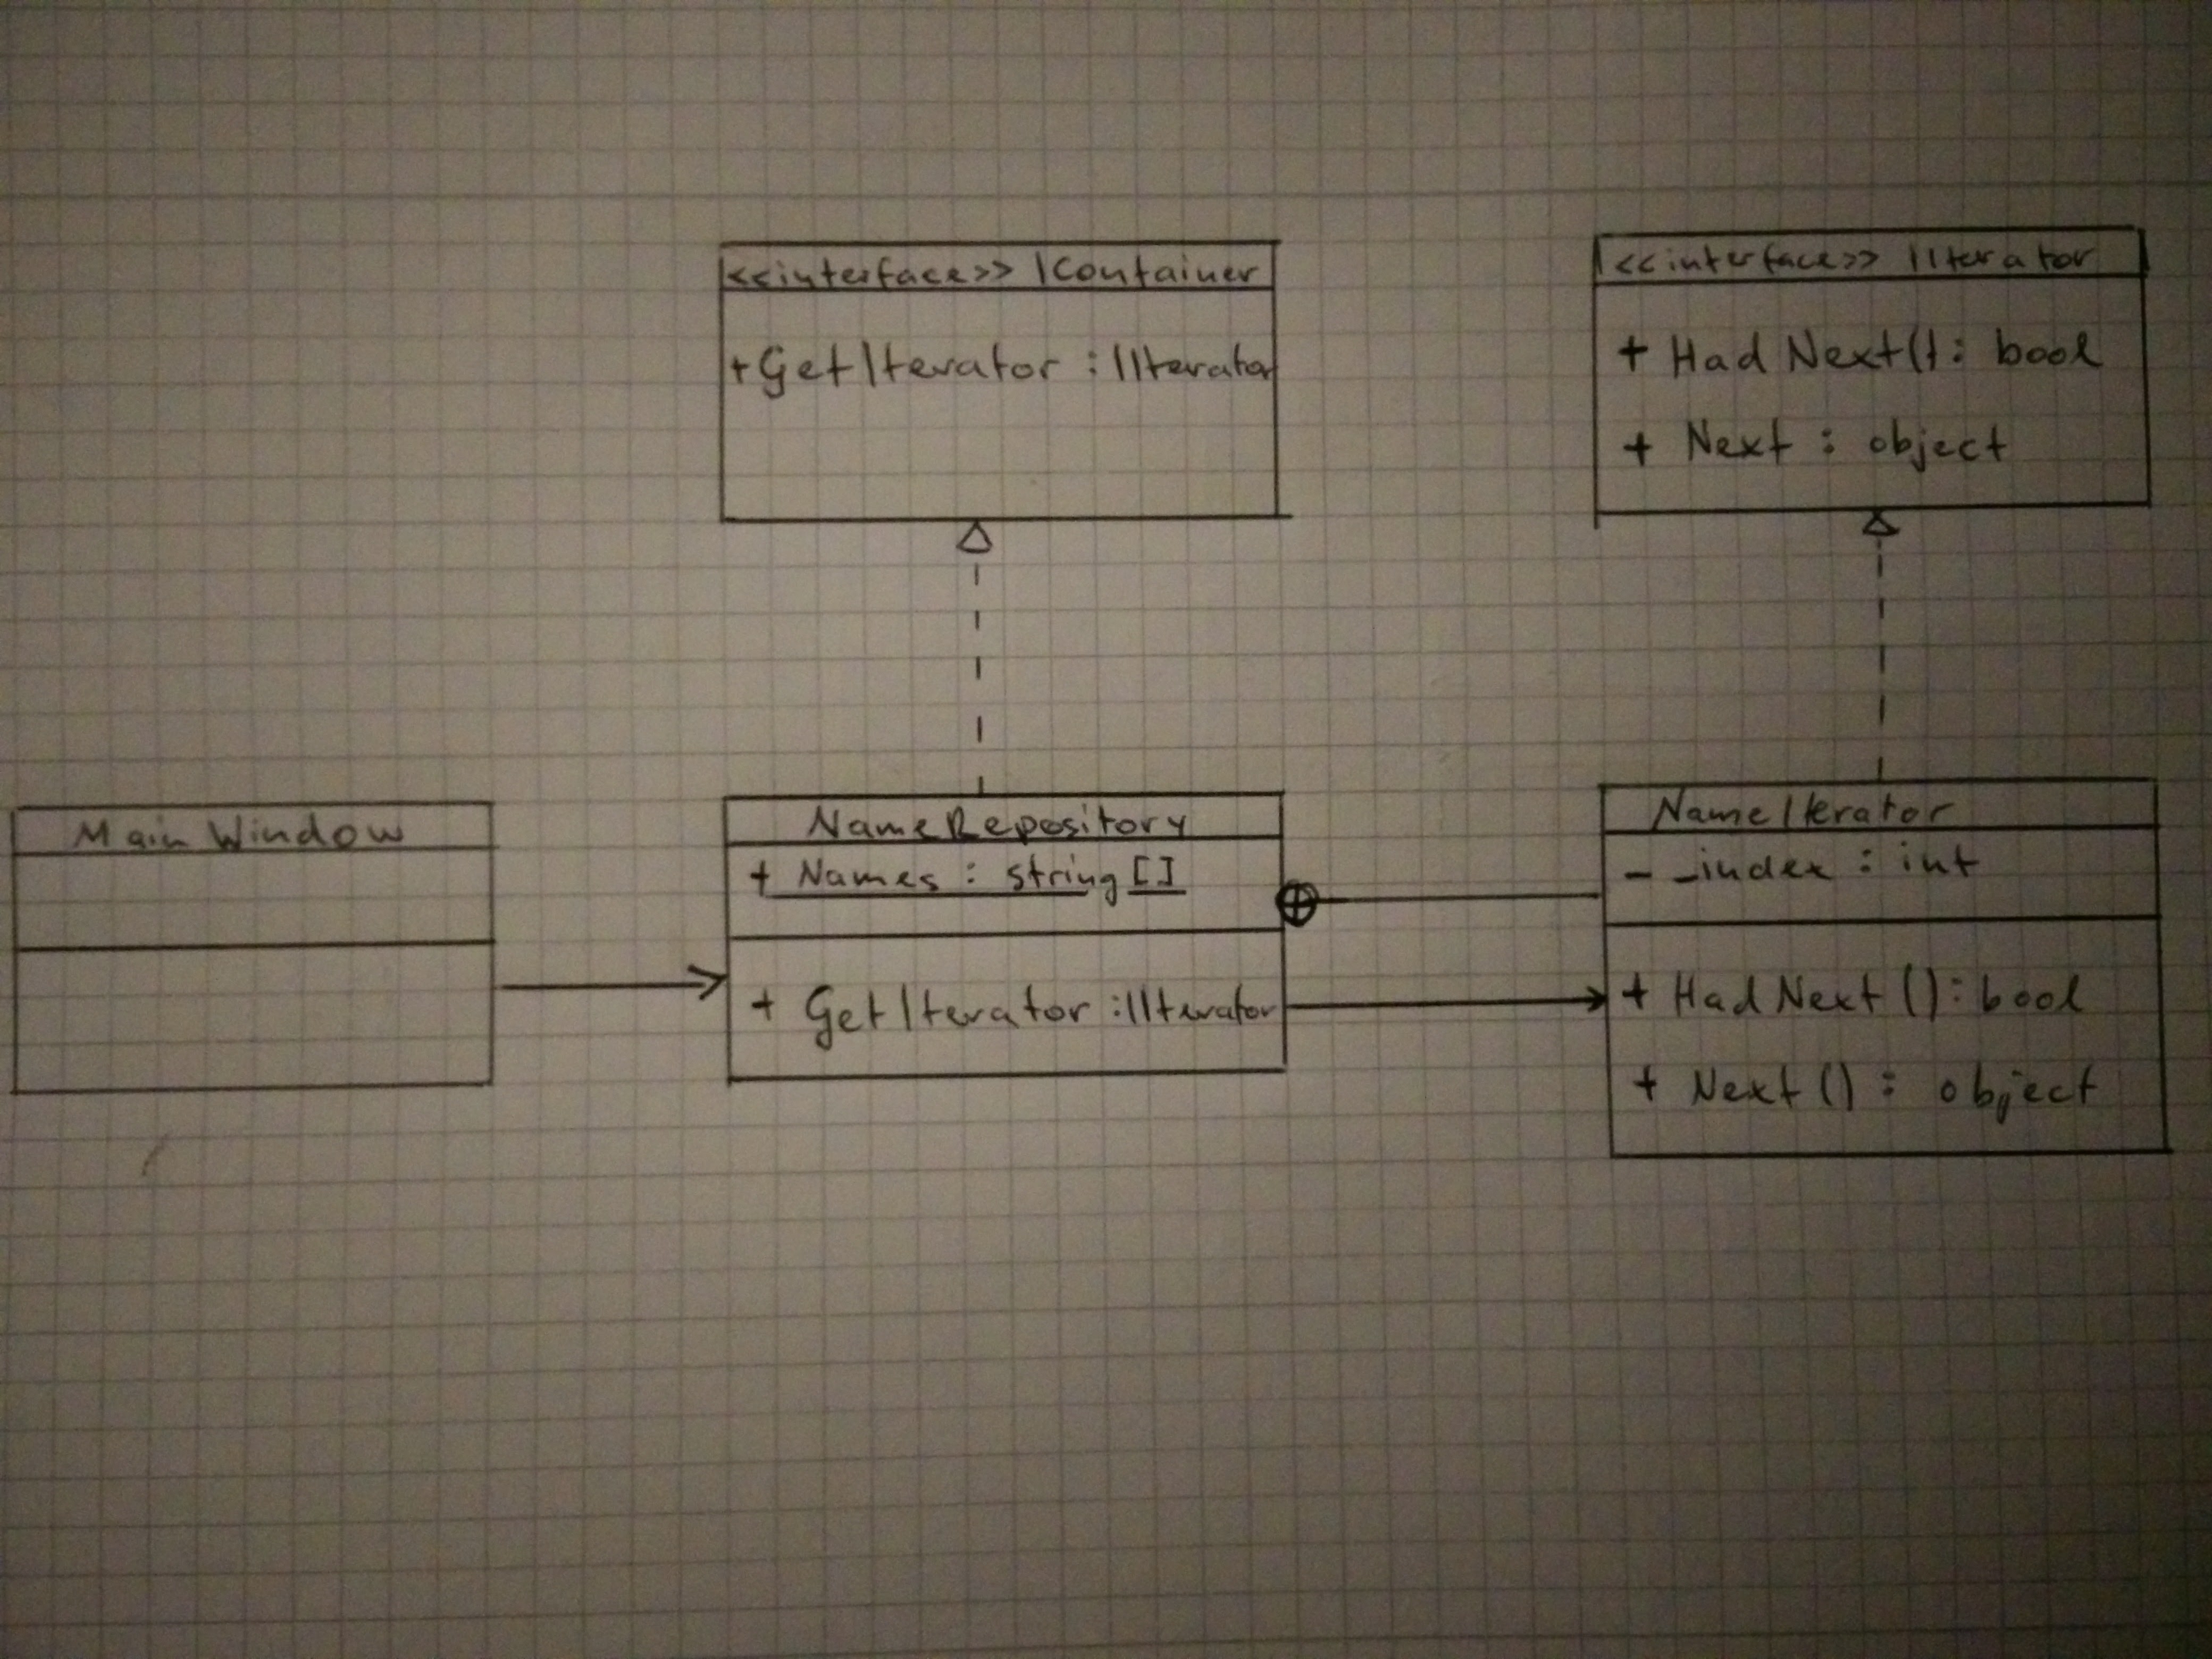 <<interface>> IContainer
+GetIterator : IIterator
<<interface>> IIterator
+ HadNext() : bool
+ Next : object
MainWindow
NameRepository
+ Names : string[]
+ GetIterator : IIterator
NameIterator
- _index : int
+ HadNext() : bool
+ Next() : object